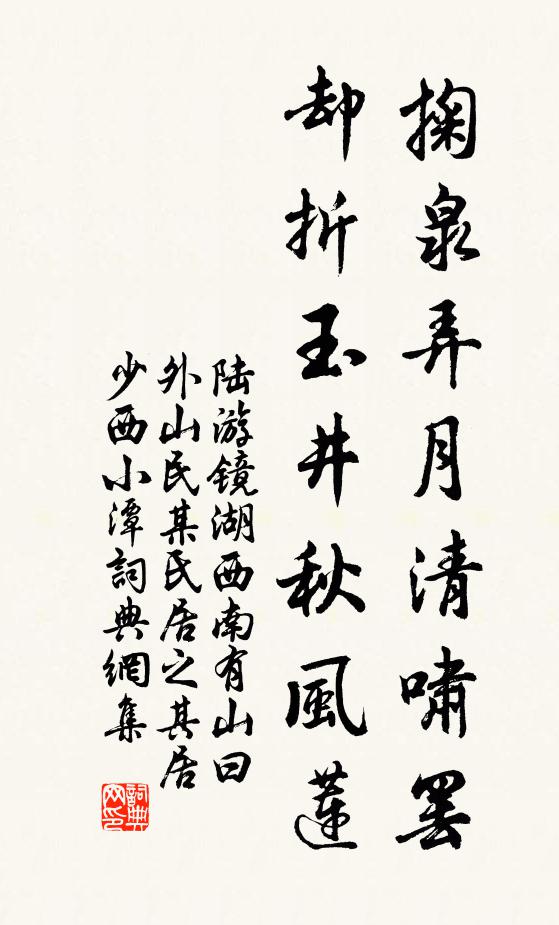 掬泉弄月清嘯罷
却折玉井秋風蓮
陆游镜湖西南有山曰
外山民某氏居之其居
少西小潭詞典網集
詞典
网印